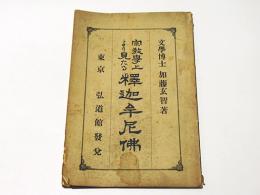 文學博士 加藤玄智著
宗教學上
より見たる
釋迦牟尼佛
東京 弘道館發兌